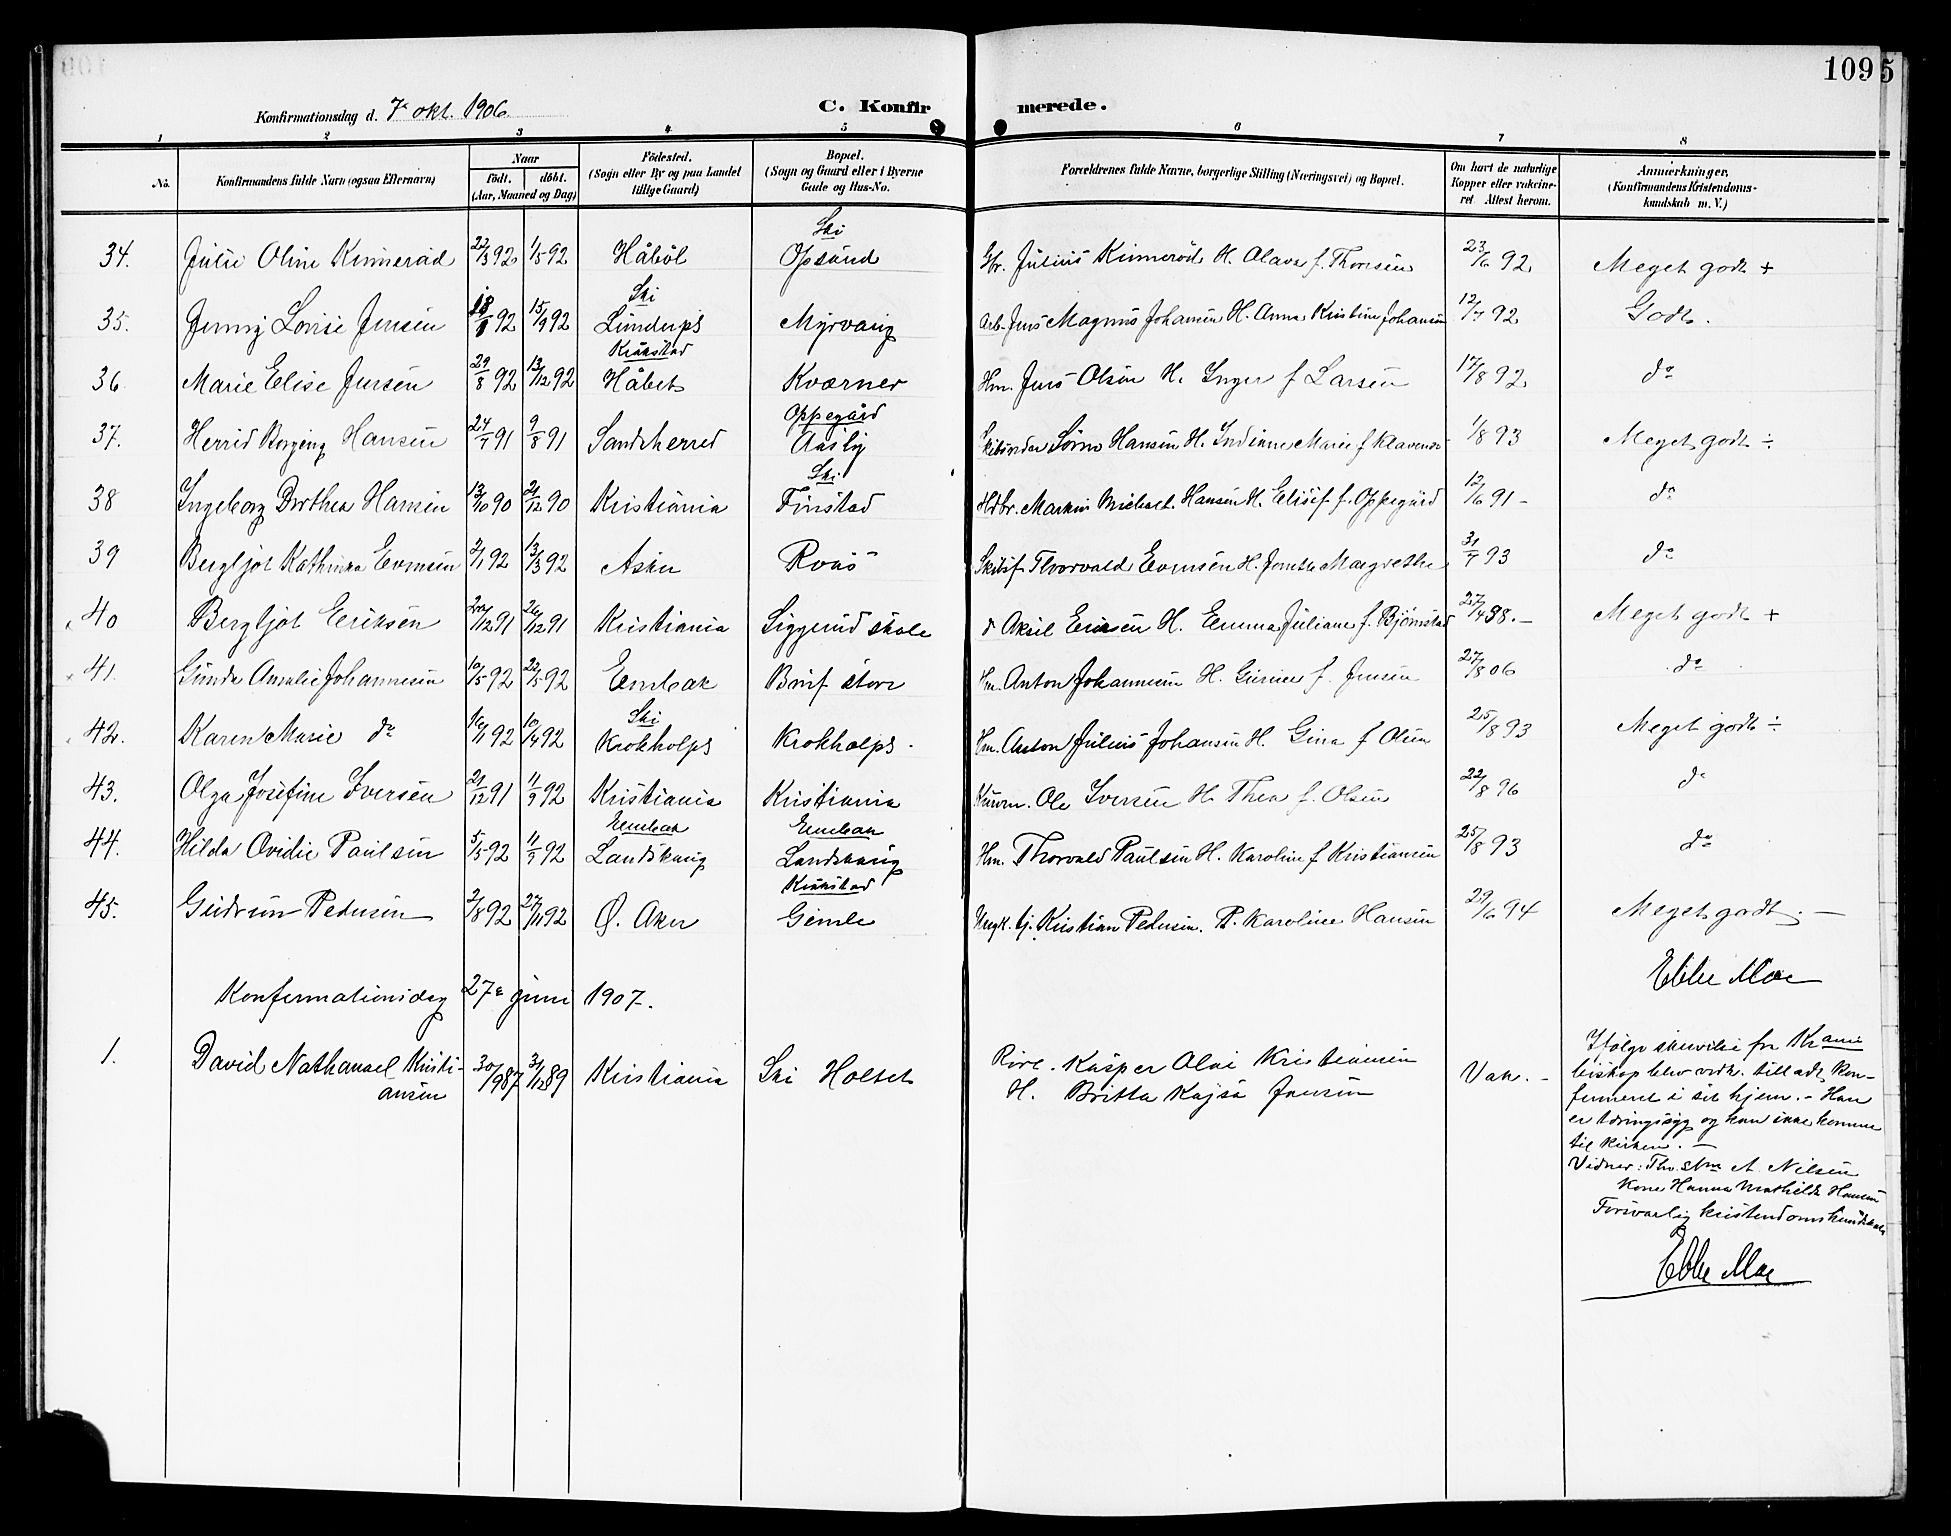 109
5
Konfirmationsdag d. 7de okt. 1906.
C. Konfirmerede.
1 2 3 4 5 6 7 8
No.
Konfirmandens fulde Navn (ogsaa Efternavn)
Naar
födt. döbt.
(Aar, Maaned og Dag)
Födested.
(Sogn eller By og paa Landet
tillige Gaard)
Bopæl.
(Sogn og Gaard eller i Byerne
Gade og Hus-No.
Forældrenes fulde Navne, borgerlige Stilling (Næringsvei) og Bopæl.
Om havt de naturlige
Kopper eller vakcine-
ret Attest herom.
Anmærkninger,
(Konfirmandens Kristendoms-
kundskab m. V.)
Ski
34. Julie Oline Kinnerød 22/3 92 1/5 92 Håbøl Opsund Gbr. Julius Kinnerød H. Olava f. Thoresen 23/6 92 Meget godt +
Ski
35. Jenny Lovise Jensen 92 15/9 92 Myrvang Arb. Jens Magnus Johansen H. Anna Kristine Johansen 12/7 92 Godt.
Kråkstad
36 Marie Elise Jensen 29/8 92 13/12 92 Håbet Kværner Hm. Jens Olsen H. Inger f Larsen 17/8 92 do
Oppegård
37. Hansen 24/7 91 9/8 91 Sandeherred Aasly Søren Hansen H. Marie f 1/8 93 Meget godt ÷
Ski
38 Ingeborg Dorthea Hansen 13/10 90 21/12 90 Kristiania Finstad Hdbr. Martin Michael. Hansen H. Elisef f. Oppegård 12/6 91 - do
39 Bergljot Kathinka Evensen 2/1 92 13/3 92 Asker Roås Thorvald Evensen H. Margrethe 31/7 93 do
40 Bergljot Eriksen 20/12 91 26/12 91 Kristiania Siggerud skole d Aksel Eriksen H. Emma Juliane f. Bjørnstad 27/4 98. - Meget godt +
41. Gunda Amalie Johannesen 10/5 92 22/5 92 Enebak Brief store Hm. Anton Johannesen H. Gurine f. Jensen 27/8 06 do
Ski
42. Karen Marie do 16/1 92 10/4 92 Krokholps Krokholps. Hm. Anton Julius Johansen H. Gina f Olsen 25/8 93 Meget godt ÷
43. Olga Josefine Iversen 21/12 91 11/9 92 Kristiania Kristiania Ole Iversen H. Thea f. Olsen 22/8 96 do
Enebak Enebak
44. Hilda Ovidie Paulsen 5/5 92 11/9 92 Landskaug Landskaug Hm. Thorvald Paulsen H. Karoline f Kristiansen 25/8 93 do
Kråkstad
45. Gudrun Pedersen 2/8 92 27/11 92 Ø. Aker Gimle Ungk. tj. Kristian Pedersen. P. Karoline Hansen 29/6 94 Meget godt. -
Ebbe Moe
Konfirmationsdag 27de juni 1907.
1. David Nathanael Kristi- 30/9 87 31/12 89 Kristiania Ski Holset Kasper Olai Kristiansen Vak. -
ansen H. Britta Kajsa Jansen
Ifølge skrivelse fra Kr.ania
biskop blev vedk. tilladt kon-
firmeret i sit hjem. - Han
er tæringssyg og kan ikke komme
til kirken. -
Vidner: A Nilsen
Kone Hanna Mathilde Hansen
Forsvarlig kristendomskundskab
Ebbe Moe